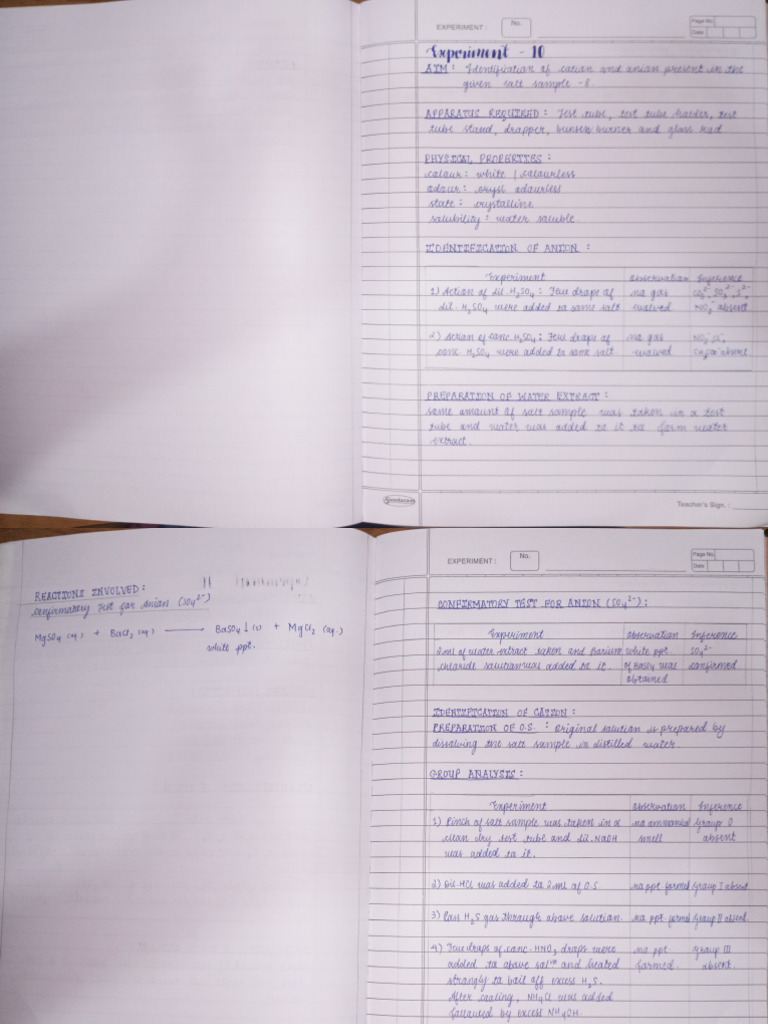 EXPERIMENT :
No.
Page No.
Date
Experiment - 10
AIM : Identification of cation and anion present in the
given salt sample - 8.
APPARATUS REQUIRED : Test tube, test tube holder, test
tube stand, dropper, bunsen burner and glass rod
PHYSICAL PROPERTIES :
colour : white / colourless
odour : odourless
state : crystalline
solubility : water soluble.
IDENTIFICATION OF ANION :
Experiment Observation Inference
1) Action of dil. H₂SO₄ : Few drops of no gas CO₃²⁻, SO₃²⁻, S²⁻
dil. H₂SO₄ were added to some salt evolved NO₂⁻ absent
2) Action of conc. H₂SO₄ : Few drops of no gas NO₃⁻, Cl⁻,
conc. H₂SO₄ were added to some salt evolved absent
PREPARATION OF WATER EXTRACT :
Some amount of salt sample was taken in a test
tube and water was added to it to form water
extract.
Teacher's Sign. :
REACTIONS INVOLVED :
confirmatory test for anion (SO₄²⁻)
MgSO₄ (aq) + BaCl₂ (aq) ⟶ BaSO₄ ↓ (s) + MgCl₂ (aq.)
white ppt.
EXPERIMENT :
No.
Page No.
Date
CONFIRMATORY TEST FOR ANION (SO₄²⁻) :
Experiment Observation Inference
2 ml of water extract taken and Barium white ppt. SO₄²⁻
chloride solution was added to it. of BaSO₄ was confirmed
obtained
IDENTIFICATION OF CATION :
PREPARATION OF O.S. : Original solution is prepared by
dissolving the salt sample in distilled water
GROUP ANALYSIS :
Experiment Observation Inference
1) Pinch of salt sample was taken in a no ammonical Group 0
clean dry test tube and dil. NaOH smell absent
was added to it.
2) Dil HCl was added to 2 ml of O.S no ppt formed Group I absent
3) Pass H₂S gas through above solution. no ppt formed Group II absent.
4) Few drops of conc. HNO₃ drops were no ppt Group III
added to above solⁿ and heated formed. absent.
strongly to boil off excess H₂S.
After cooling, NH₄Cl was added
followed by excess NH₄OH.